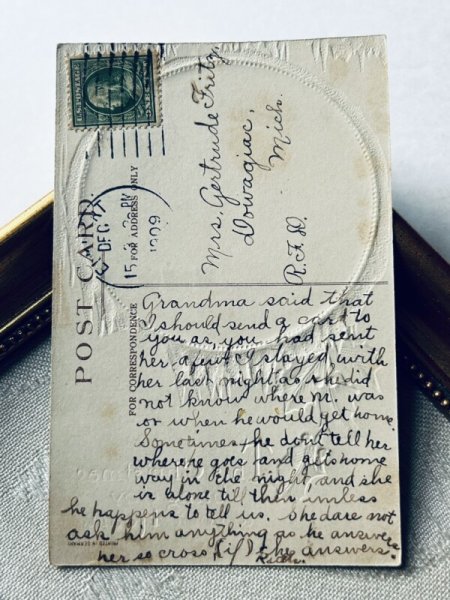 U.S. POSTAGE
DEC
15
2 PM
1909
POST CARD.
FOR ADDRESS ONLY
Mrs. Gertrude Fritz,
Dowagiac,
Mich.
R.F.D.
FOR CORRESPONDENCE
Grandma said that
I should send a card to
you as you had sent
her a I stayed with
her last night as she did
not know where m. was
or when he would get home
Sometimes he dont tell her
where he goes and gets home
way in the night and she
is alone till then unless
he happens to tell us. She dare not
ask him anything as he answers
her so cross, (if) he answers.
PRINTED IN GERMANY